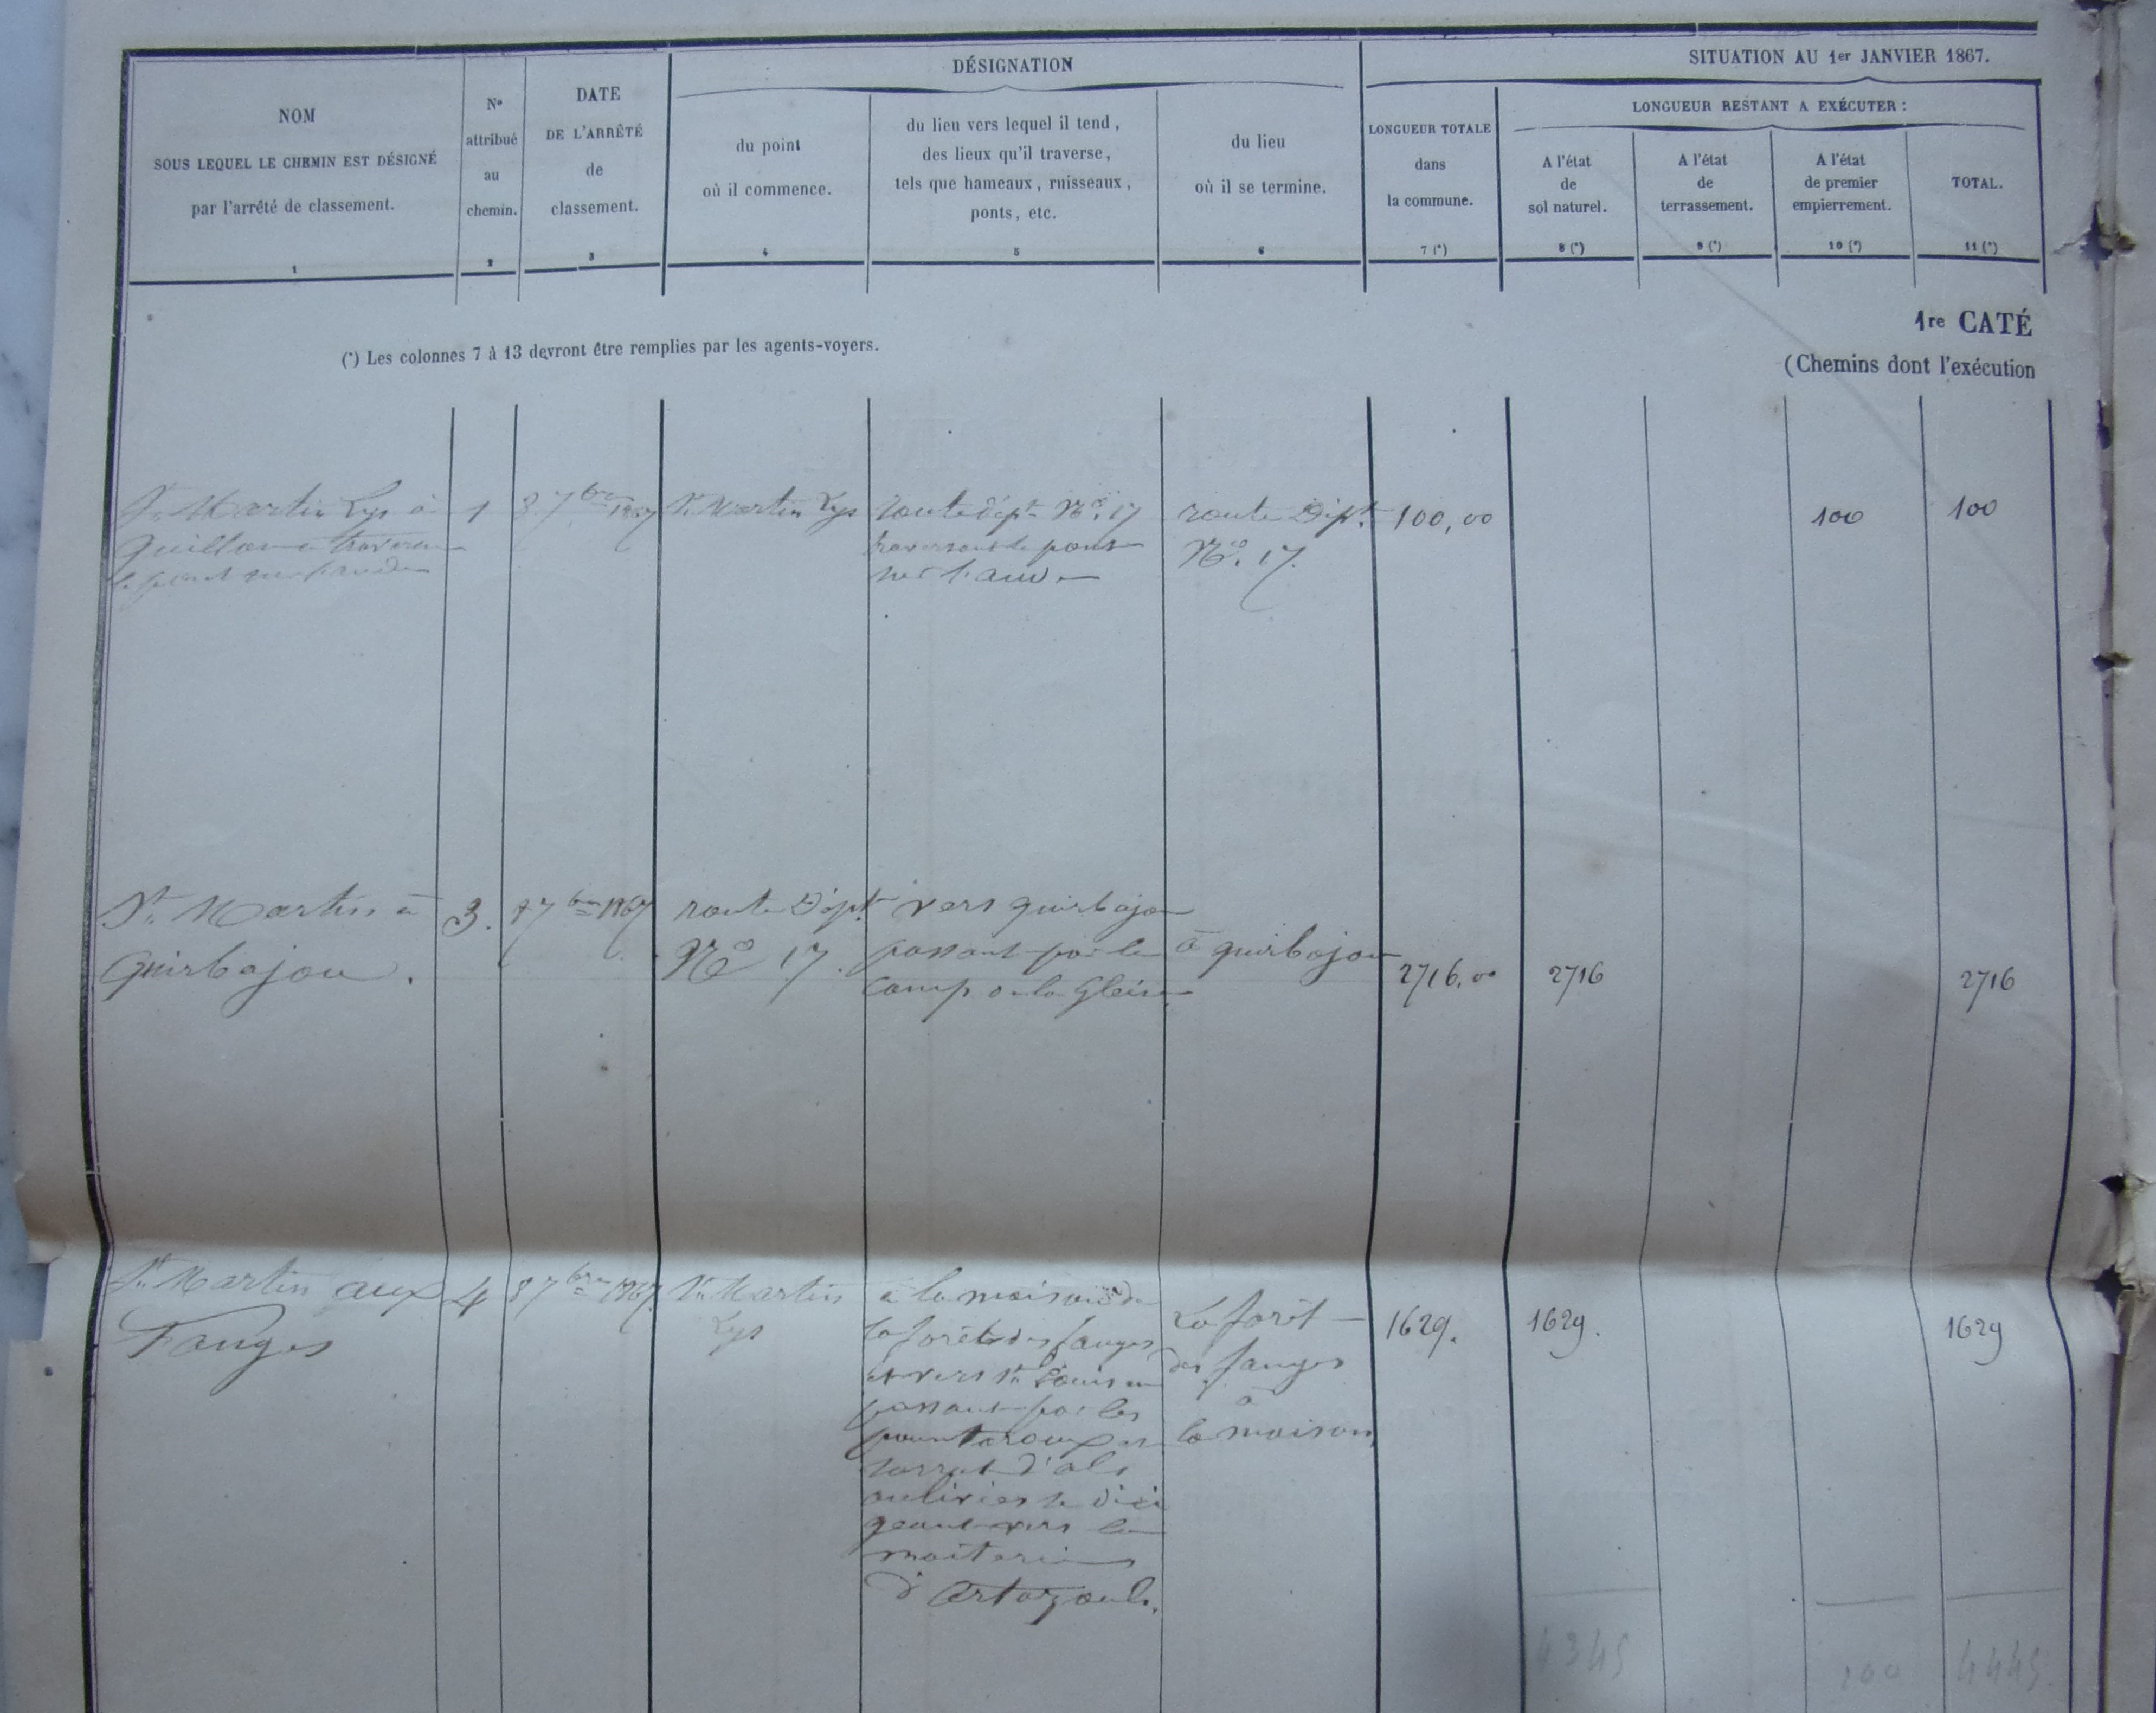 DÉSIGNATION
SITUATION AU 1er JANVIER 1867.
NOM
SOUS LEQUEL LE CHEMIN EST DÉSIGNÉ
par l'arrêté de classement.
1
No
attribué
au
chemin.
2
DATE
DE L'ARRÊTÉ
de
classement.
3
du point
où il commence.
4
du lieu vers lequel il tend,
des lieux qu'il traverse,
tels que hameaux, ruisseaux,
ponts, etc.
5
du lieu
où il se termine.
6
LONGUEUR TOTALE
dans
la commune.
7 (*)
LONGUEUR RESTANT A EXÉCUTER :
A l'état
de
sol naturel.
8 (*)
A l'état
de
terrassement.
9 (*)
A l'état
de premier
empierrement.
10 (*)
TOTAL.
11 (*)
1re CATÉ
(*) Les colonnes 7 à 13 devront être remplies par les agents-voyers.
(Chemins dont l'exécution
St Martin Lys à
1
8 7bre 1867
St Martin Lys
route dépt No. 17
traversant le pont
sur l'aude
route Dépt
No. 17.
100,00
100
100
St Martin à
Quirbajou.
3.
8 7bre 1867
route Dépt
No 17.
vers quirbajou
passant par le
Camp de la Gleise
à quirbajou
2716,00
2716
2716
St Martin aux
Fanges
4
8 7bre 1867.
St Martin
Lys
à la maison de
la forêt des fanges
et vers St Louis en
passant par les
d'als
se diri
geant vers la
maiterie
d'Artozouls.
La forêt
des fanges
à
la maison
1629.
1629.
1629
4345
100
4445.